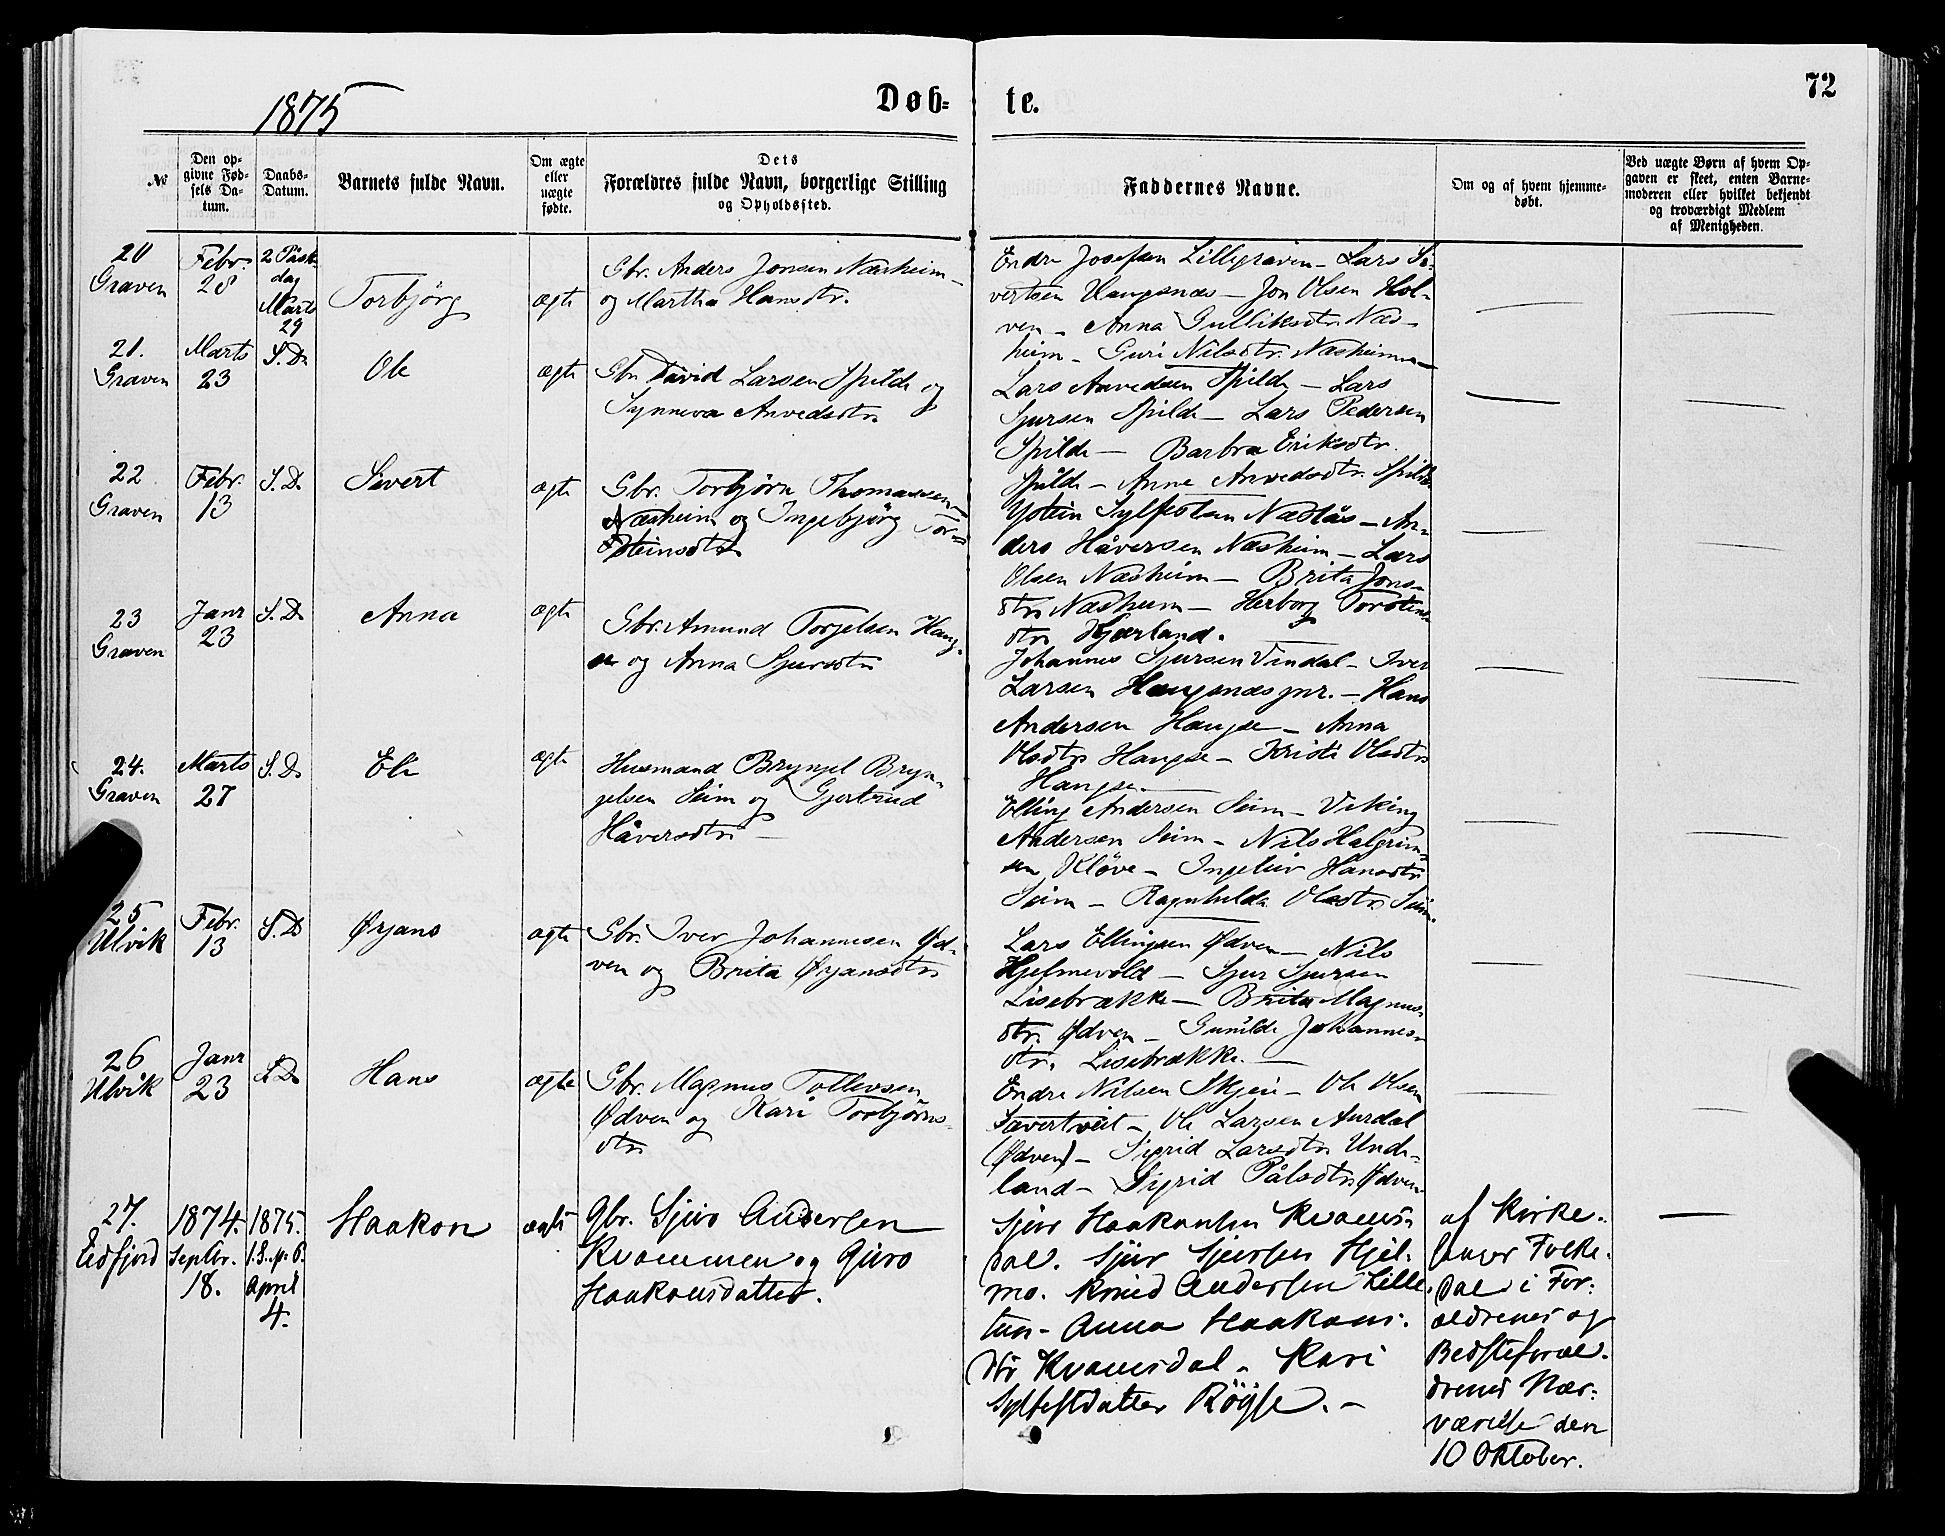 72
1875
Døb-
te.
№
Den op-
givne Fød-
sels Da-
tum.
Daabs-
Datum.
Barnets fulde Navn.
Om ægte
eller
uægte
fødte.
Dets
Forældres fulde Navn, borgerlige Stilling
og Opholdssted.
Faddernes Navne.
Om og af hvem hjemme-
døbt.
Ved uægte Børn af hvem Op-
gaven er skeet, enten Barne-
moderen eller hvilket bekjendt
og troværdigt Medlem
af Menigheden.
20
Graven
Febr.
28
2 Påsk-
dag
Marts
29
Torbjörg
ægte
Gbr. Anders Jonsen Næsheim
og Martha Hansdtr.
Endre Josefsen Lillegraven - Lars Si-
vertsen Haugsnæs - Jon Olsen Hol-
ven - Anna Gulliksdtr. Næs-
heim - Guri Nilsdtr. Næsheim
21.
Graven
Marts
23
S. D.
Ole
ægte
Gbr. David Larsen Spilde og
Synneva Anvedsdtr.
Lars Anvedsen Spilde - Lars
Sjursen Spilde - Lars Pedersen
Spilde - Barbra Eriksdtr.
Spilde - Anne Anvedsdtr. Spilde
22
Graven
Febr.
13
S. D.
Sivert
ægte
Gbr. Torbjörn Thomassen
Næsheim og Ingebjörg Tor-
steinsdtr
Ystein Sylfestsen Nædlås - An-
ders Håversen Næsheim - Lars
Olsen Næsheim - Brita Jons-
dtr Næsheim - Herborg Torsteins
dtr Kjærland.
23
Graven
Janr
23
S. D.
Anna
ægte
Gbr. Amund Torjelsen Haug-
se og Anna Sjursdtr
Johannes Sjursen Vindal - Iver
Larsen Haugsnæs jnr. - Hans
Andersen Haugse - Anna
Olsdtr Haugse - Kristi Olsdtr
Haugse.
24.
Graven
Marts
27
S. D.
Eli
ægte
Husmand Bryngel Bryn-
gelsen Seim og Gjertrud
Håversdtr
Elling Andersen Seim - Viking
Andersen Seim - Nils Halgrim-
sen Kløve - Ingeleiv Hansdtr
Seim - Ragnhilda Olsdtr Seim
25
Ulvik
Febr.
13
S. D.
Ørjans
ægte
Gbr. Iver Johannesen Ød-
ven og Brita Ørjansdtr
Lars Ellingsen Ødven - Nils
Hjelmevold - Sjur Sjursen
Lisebrække - Brita Magnus-
dtr. Ødven - Gunilde Johannes-
dtr. Lisebrække.
26
Ulvik
Janr
23
S. D.
Hans
ægte
Gbr. Magnus Tollevsen
Ødven og Kari Torbjörns-
dtr
Endre Nilsen Skjeie - Ole Olsen
Tavertveit - Ole Larsen Aurdal
(Ødven) - Sigrid Larsdtr Unde-
land - Sigrid Pålsdtr Ødven
27.
Eidfjord
1874.
Septbr.
18.
1875.
1. S. p. P.
April
4.
Haakon
ægte
Gbr. Sjur Andersen
Kvammen og Guro
Haakonsdatter.
Sjur Haakonsen Kvams-
dal. Sjur Sjursen Hjel-
mo. Knud Andersen Lille-
tun - Anna Haakons-
dtr Kvamsdal - Kari
Sylfestdatter Röise. -
af Kirke-
sanger Folke-
dal i For-
ældrenes og
Bedstefor­æl-
drenes Nær-
værelse den
10 Oktober.